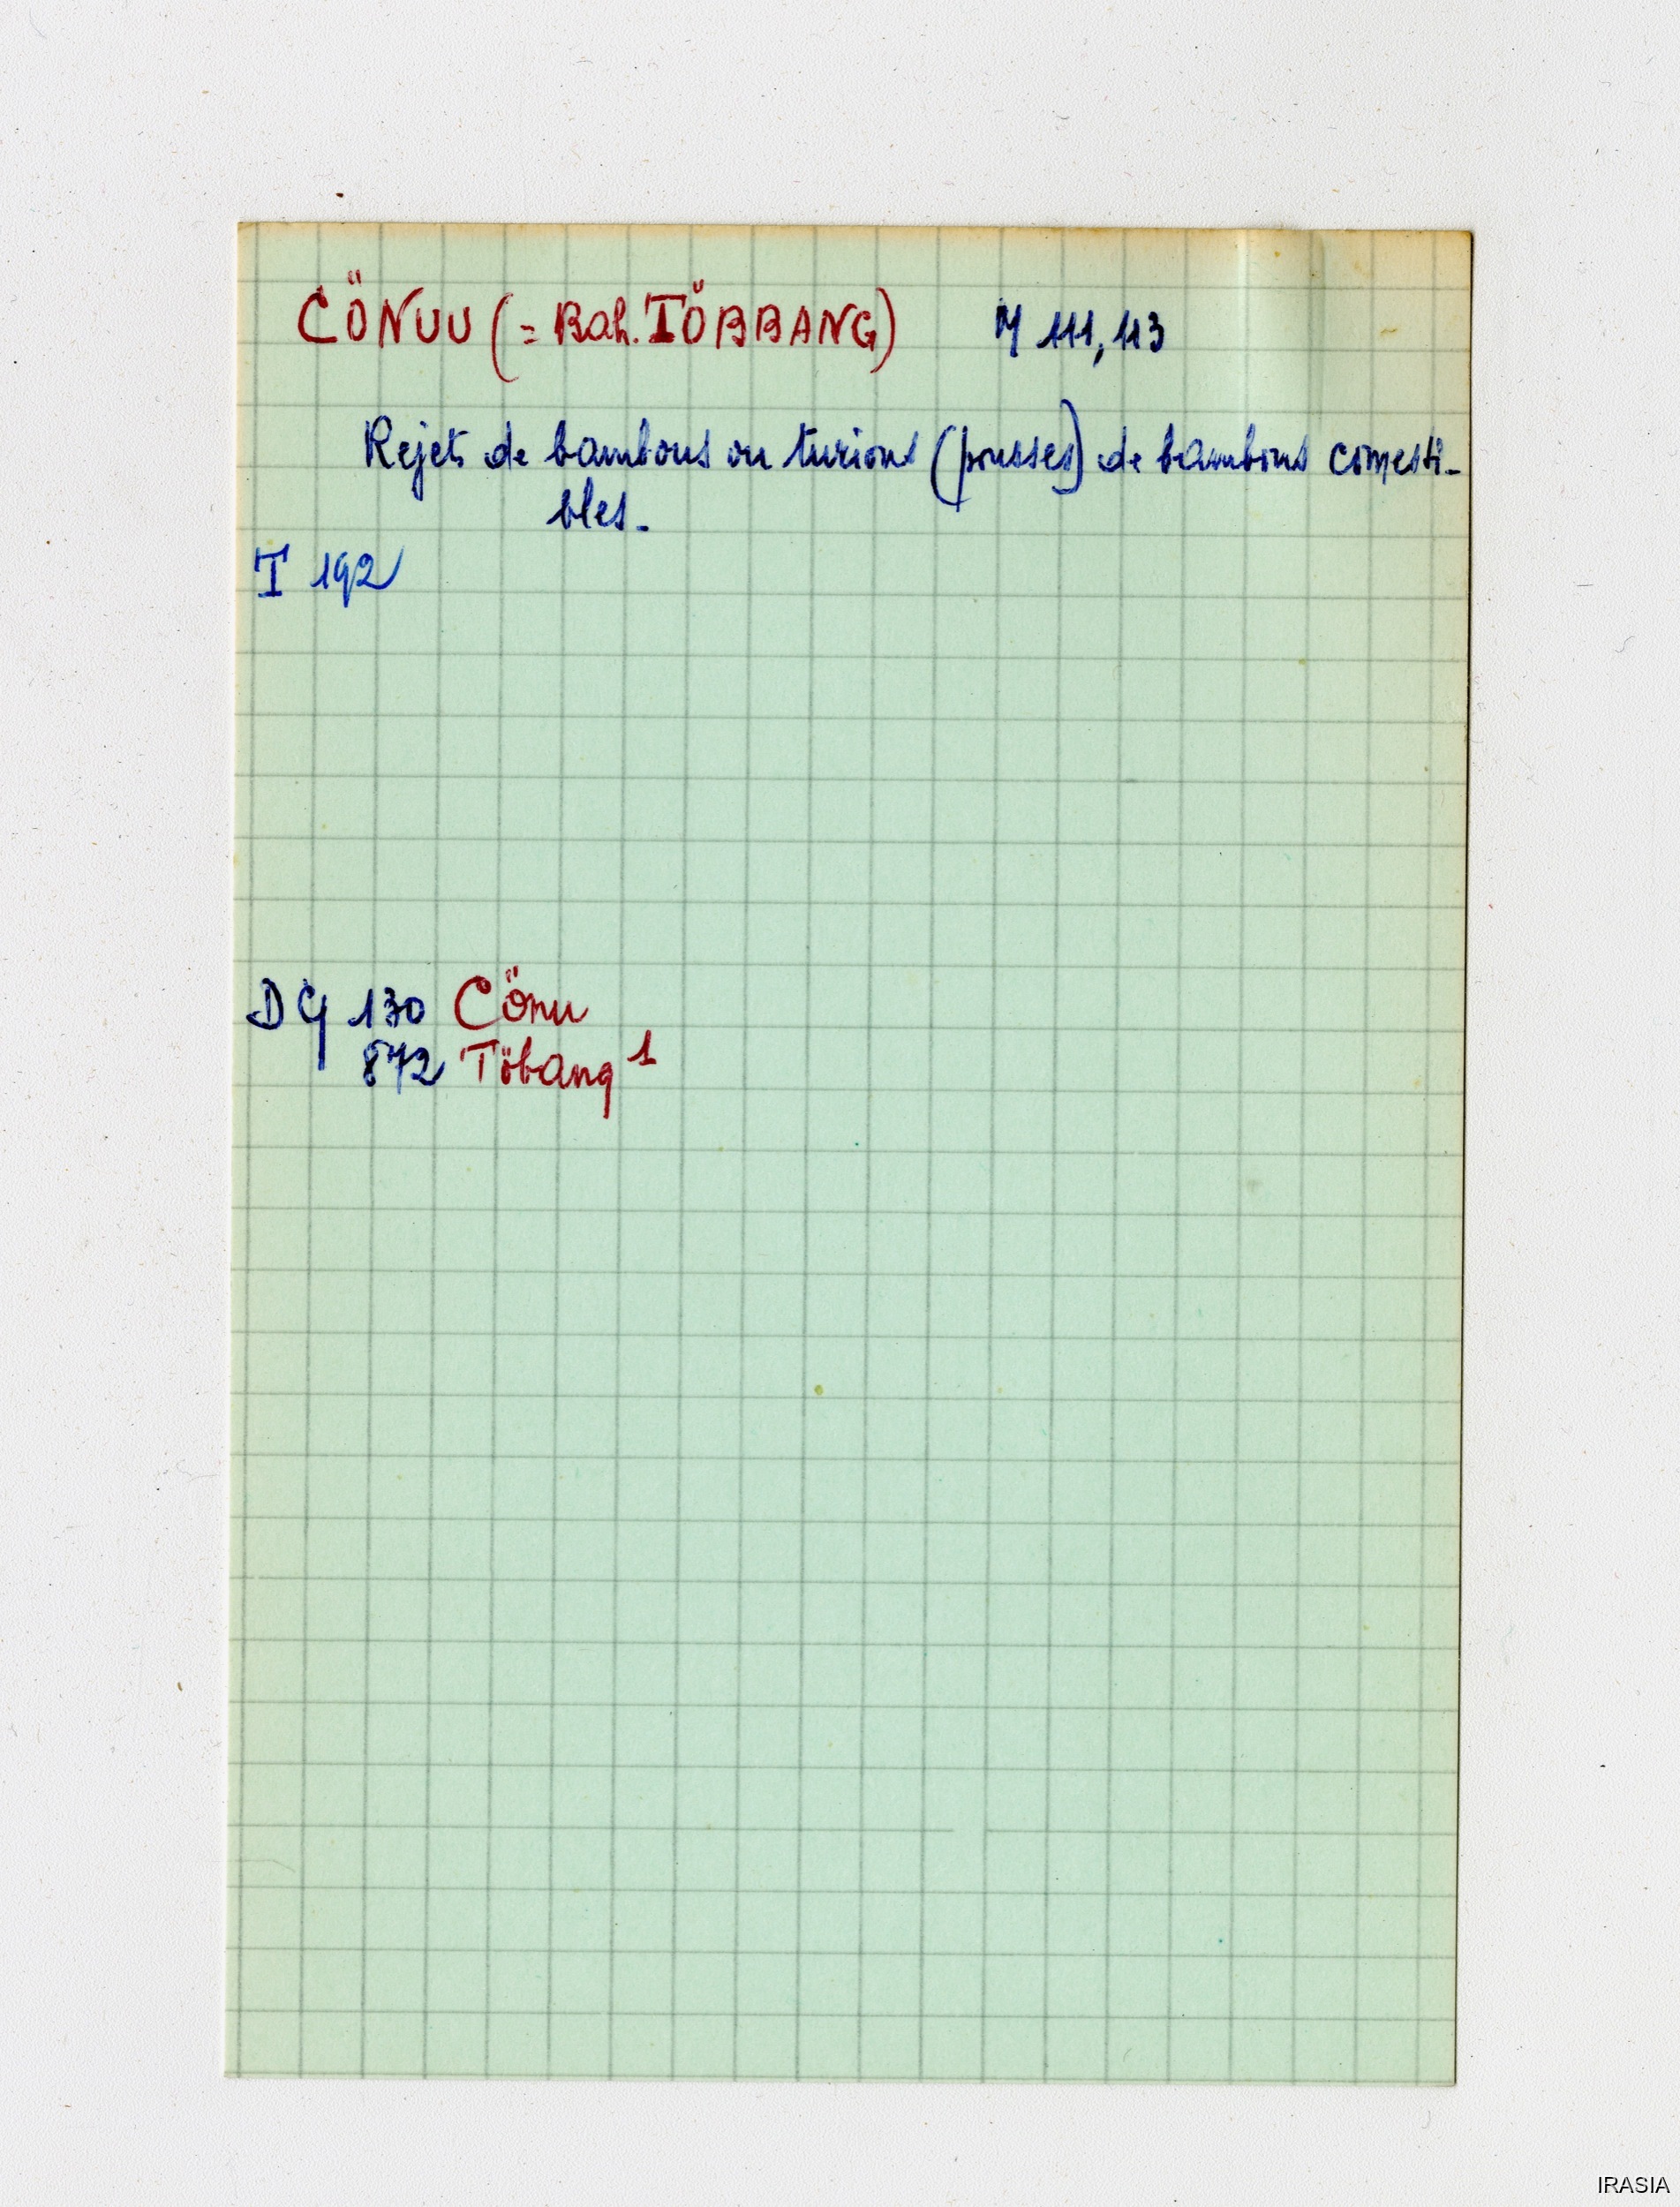 CÖNUU (= Bah. TÖBBANG) M 111, 113
Rejets de bambous ou turions (pousses) de bambous comesti-
bles.
T 192
DG 130 Cönu
872 Töbang 1
IRASIA